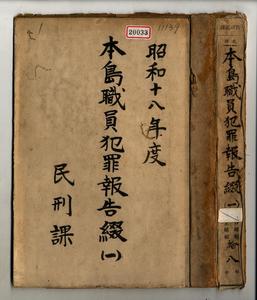 20033
11139
昭和十八年度
本島職員犯罪報告綴(一)
民刑課
本島職員犯罪報告綴(一)
拾八